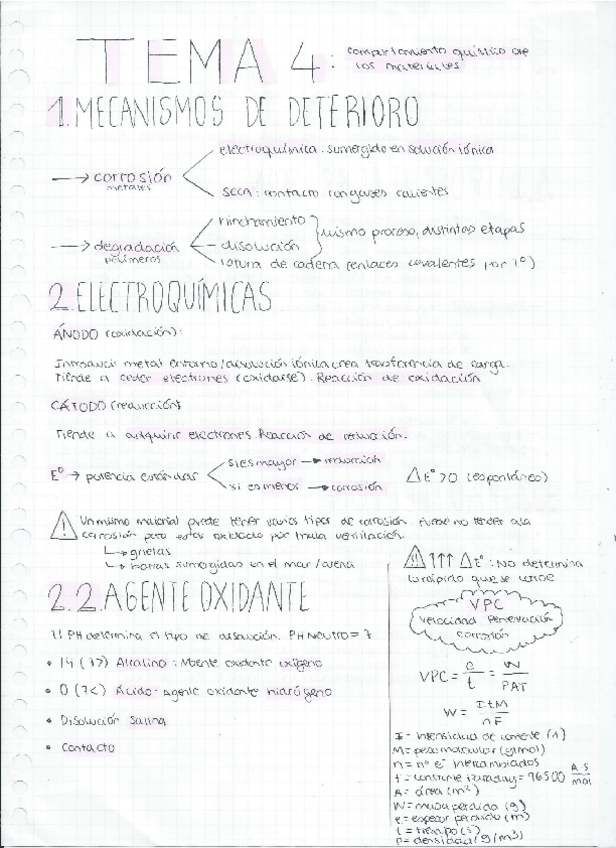 TEMA 4: comportamiento químico de
los materiales
1. MECANISMOS DE DETERIORO
→ corrosión
metales
electroquímica: sumergido en solución iónica
seca: contacto con gases calientes
→ degradación
polímeros
hinchamiento
disolución
rotura de cadena (enlaces covalentes por Tº)
mismo proceso, distintas etapas
2. ELECTROQUÍMICAS
ÁNODO (oxidación):
Introducir metal entorno/disolución iónica crea transferencia de carga.
Tiende a ceder electrones (oxidarse). Reacción de oxidación
CÁTODO (reducción):
Tiende a adquirir electrones. Reacción de reducción.
Eº → potencia estándar
si es mayor → reducción
si es menor → corrosión
ΔEº>0 (espontáneo)
⚠ Un mismo material puede tener varios tipos de corrosión. Puede no tender a la
corrosión pero estar oxidado por mala ventilación
↳ grietas
↳ barras sumergidas en el mar/arena
⚠ ↑↑↑ ΔEº: No determina
lo rápido que se corroe
2.2. AGENTE OXIDANTE
El PH determina el tipo de disolución. PH NEUTRO = 7
• 14 (7>) Alcalino: Agente oxidante oxígeno
• 0 (7<) Ácido: agente oxidante hidrógeno
• Disolución salina
• Contacto
VPC
Velocidad Penetración
Corrosión
VPC = e/t = W/PAT
W = ItM/nF
I = Intensidad de corriente (A)
M = peso molecular (g/mol)
n = nº e⁻ intercambiados
F = constante Faraday = 96500 A·S/mol
A = área (m²)
W = masa perdida (g)
e = espesor perdido (m)
t = tiempo (s)
ρ = densidad (g/m³)